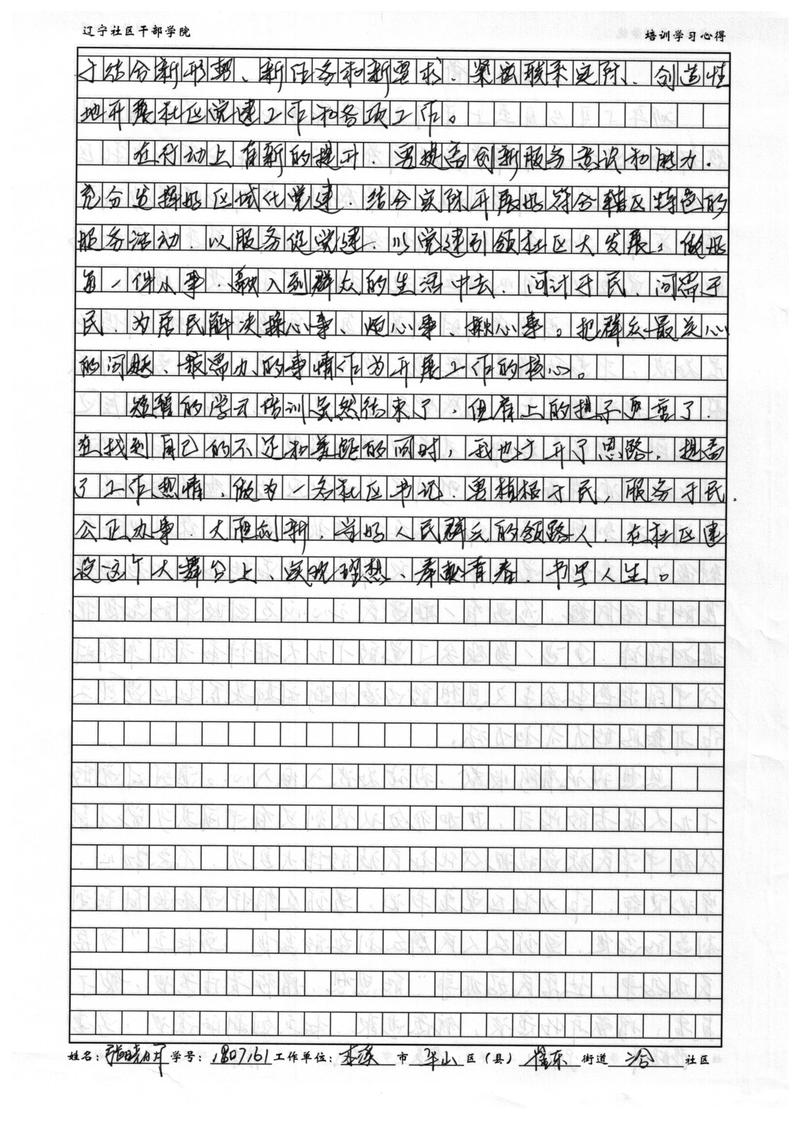 辽宁社区干部学院
培训学习心得
于结合新形势、新任务和新要求,紧密联系实际、创造性
地开展社区党建工作和各项工作。
在行动上有新的提升,要提高创新服务意识和能力,
充分发挥好区域化党建,结合实际开展好符合辖区特色的
服务活动,以服务促党建,以党建引领社区大发展,做好
每一件小事,融入到群众的生活中去,问计于民,问需于
民,为居民解决操心事、烦心事、揪心事。把群众最关心
的问题、最需办的事情作为开展工作的核心。
短暂的学习培训虽然结束了,但肩上的担子更重了,
在找到自己的不足和差距的同时,我也打开了思路,提高
了工作热情,做为一名社区书记,要植根于民,服务于民,
公正办事,大胆创新,当好人民群众的领路人,在社区建
设这个大舞台上,实现理想、奉献青春、书写人生。
姓名: 学号:1807161 工作单位:本溪 市 平山 区(县) 东 街道 社区